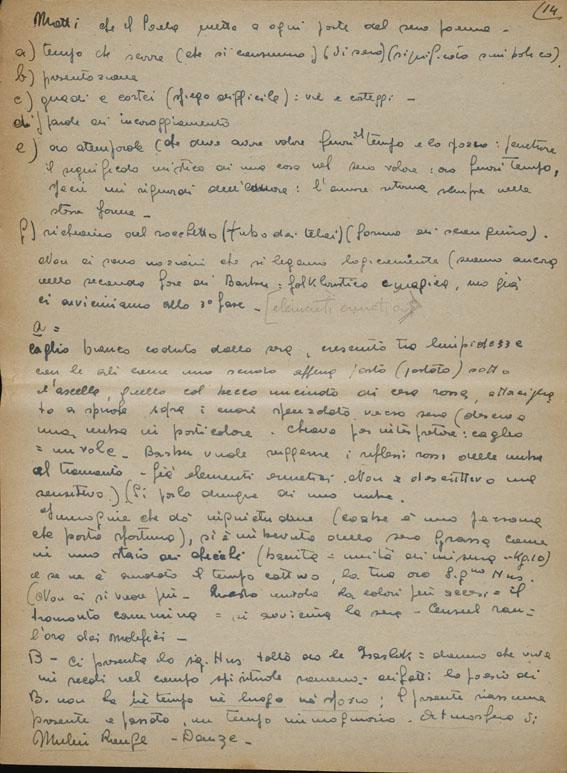 14
Motti che il Poeta mette a ogni parte del suo poema -
a) tempo che scorre (che si consuma) (di sera) (significato simbolico)
b) presentazione
c) quadri e cortei (spiego difficile): vie e corteggi -
d) parole di incoraggiamento
e) oro atemporale (che deve avere valore fuori il tempo e lo spazio: penetrare
il significato mistico di una cosa nel suo valore: oro fuori tempo,
nei riguardi dell'amore: l'amore ritorna sempre nella
stessa forma -
f) richiamo del rocchetto (tubo dei telai) (forma di
Non ci sono nozioni che si legano logicamente (siamo ancora
nella seconda fase di Barbu: folkloristica e magica, ma già
ci avviciniamo alla 3ª fase - [elementi ermetici]
a =
caglio bianco caduto dalla sera, cresciuto tra limpidezze
con le ali come una scusa appena posta (portata) sotto
l'ascella, quello col becco uncinato di cera rossa,
to a spirale sopra i cuori spenzolato verso sera (descrive
una nube in particolare. Chiave per interpretare: caglio
= nuvola. Barbu vuole suggerire i riflessi rossi delle nubi
al tramonto - già elementi ermetici. Non è descrittivo ma
sensitivo) (Si parla dunque di una nube.
Immagine che dà inquietudine (cobe è una persona
che porta sfortuna), si è imbevuto della sera grassa come
in uno staio di specchi (banita = unità di misura
e se ne è andato il tempo cattivo, la tua ora Sig.na Hus.
(Non si vede più - Questa nuvola ha colori più accesi = il
tramonto cammina = si avvicina la sera -
l'ora dei malefici -
B - Ci presenta la sig. Hus tolta da le Isarlik = danno che vive
nel campo spirituale rumeno - difatti la poesia di
B. non ha nè tempo nè luogo nè spazio; il presente riassume
presente e passato, un tempo immaginario. Atmosfera di
Mulin Rouge - Danze -